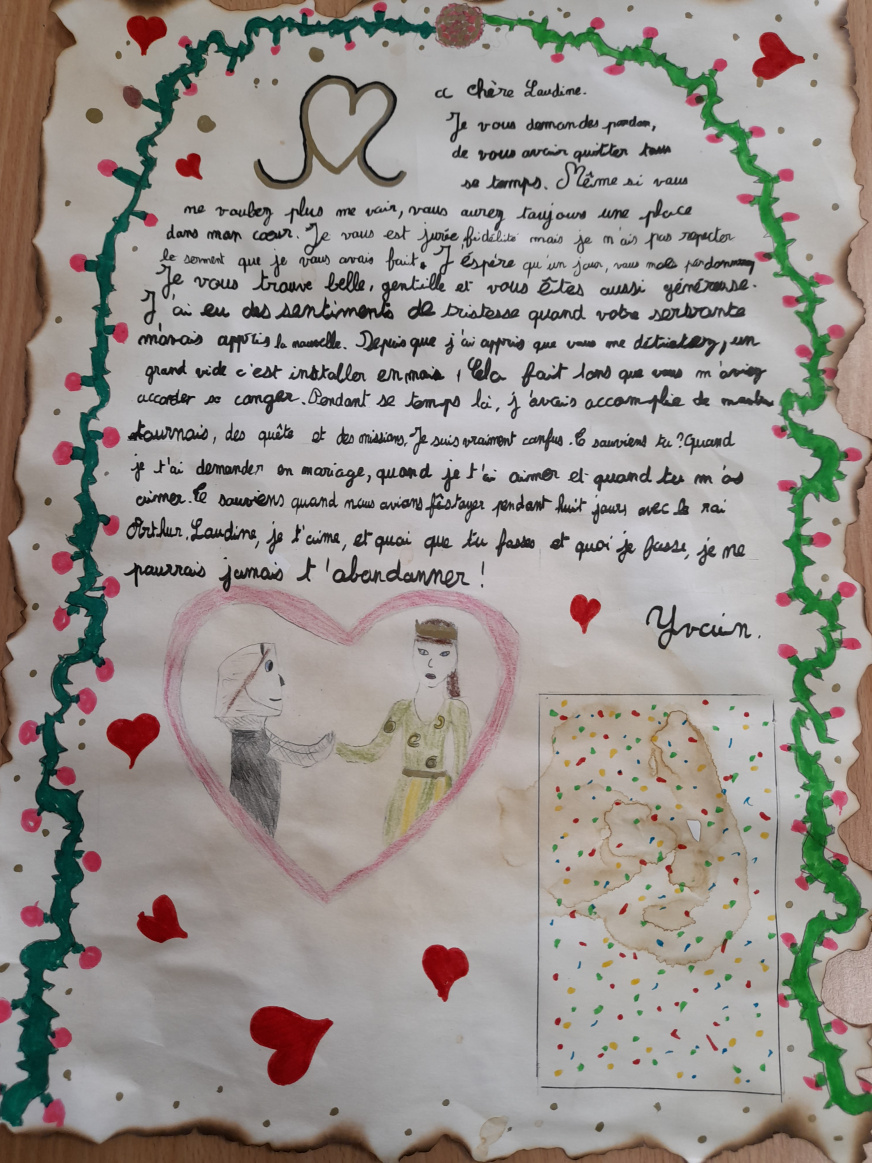 Ma chère Laudine.
Je vous demandes pardon,
de vous avoir quitter tous
se temps. Même si vous
me voulez plus me voir, vous aurez toujours une place
dans mon cœur. Je vous est jurée, fidélité mais je n'ais pas respecter
le serment que je vous avais fait. J'éspère qu'un jour, vous
Je vous trouve belle, gentille et vous êtes aussi généreuse.
J'ai eu des sentiments de tristesse quand votre servante
m'avais appris la nouvelle. Depuis que j'ai appris que vous me détestez, un
grand vide c'est installer en mois, Cela fait lons que vous m'aviez
accorder se conger. Pendant se temps là, j'avais accomplie de
tournois, des quête et des missions. Je suis vraiment confus. Te souviens tu? Quand
je t'ai demander en mariage, quand je t'ai aimer et quand tu m'as
aimer. Te souviens quand nous avions fêstoyer pendant huit jours avec le roi
Arthur. Laudine, je t'aime, et quoi que tu fasses et quoi je fasse, je ne
pourrais jamais t'abandonner!
Yvain.